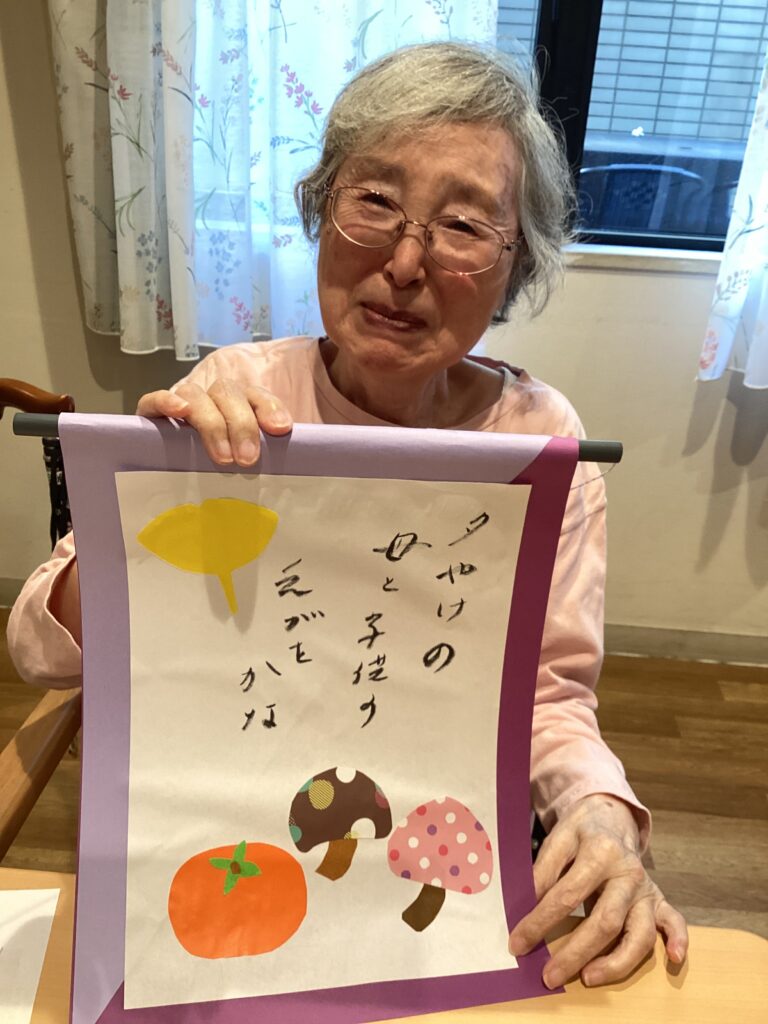 夕やけの
母と子供の
えがを
かな